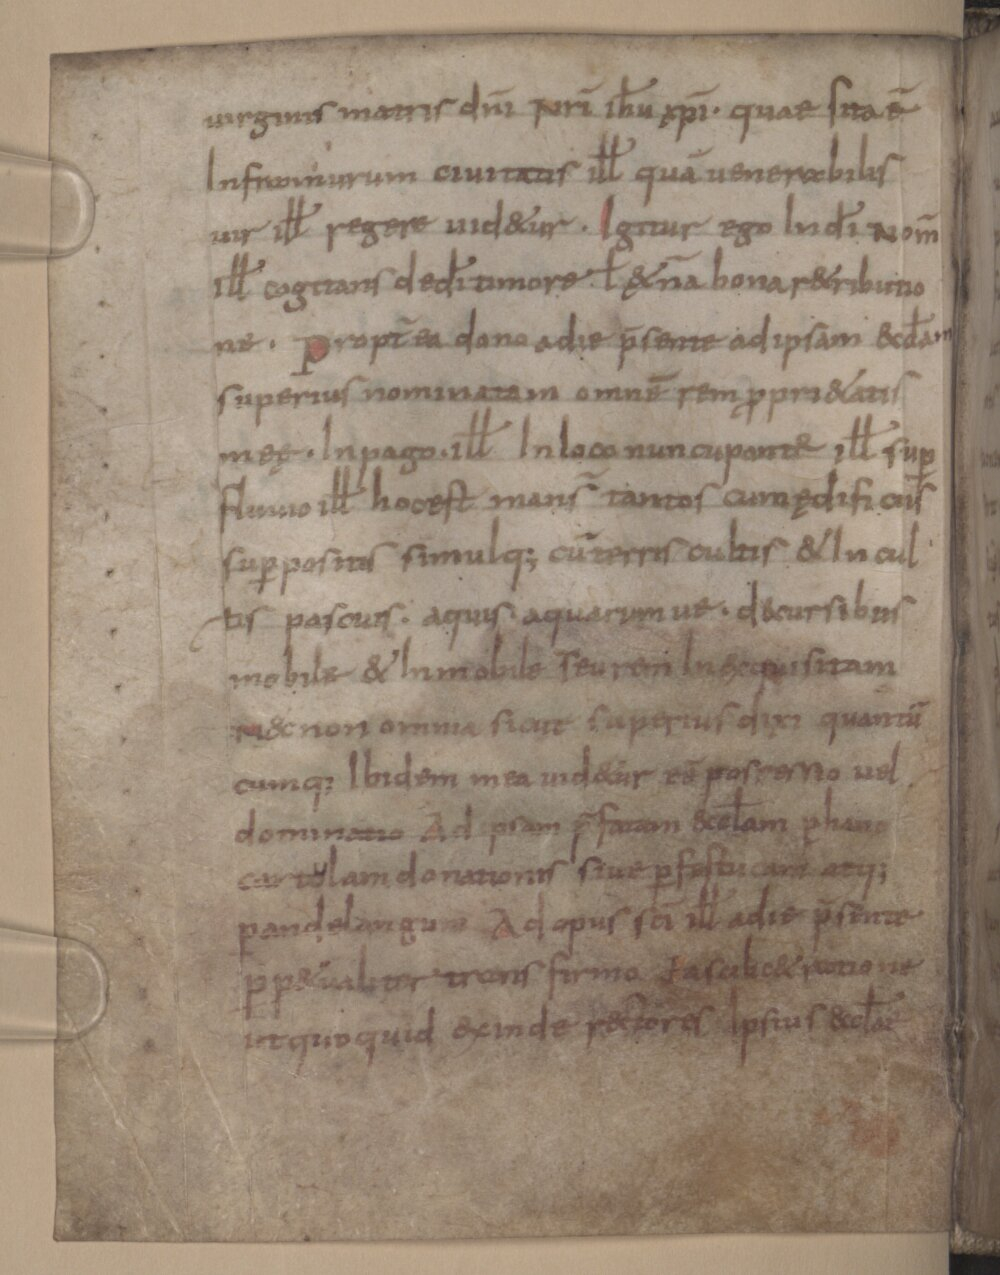 uirginis matris dn̄i nr̄i ih̄u xp̄i · quae sita ē
In fra murum ciuitatis ill̄ quā uenerabilis
uir ill̄ regere uid&ur · Igitur ego In dī nom̄
ill̄ cogitans de dī timore ł &̄na bona r&ributio
ne · Propt̄ ea dono a die p̄sente ad ipsam &ccl̄am
superius nominatam omnē rem ꝓpri&atis
meę · In pago · ill̄ In loco nuncupante ill̄ sup̄
fluuio ill̄ hoc est mans̄ tantos cum ędificiis
sup̄positis simulq; cū terris cultis & In cul
tis pascuis · aquis aquarum ue · decursibus
mobile & Inmobile seu rem Inexquisitam
n&non omnia sicut superius dixi quantū
cumq; Ibidem mea uid&ur eē possessio uel
dominatio Ad ipsam p̄fatam &ccl̄am ꝑ hanc
cartulam donationis siue ꝑ festucam atq;
ꝑ andelangum Ad opus sc̄i ill̄ a die p̄sente
ꝑp&ualiter transfirmo Ea scilic& ratione
ut quo quid exinde rectores Ipsius &ccl̄ae